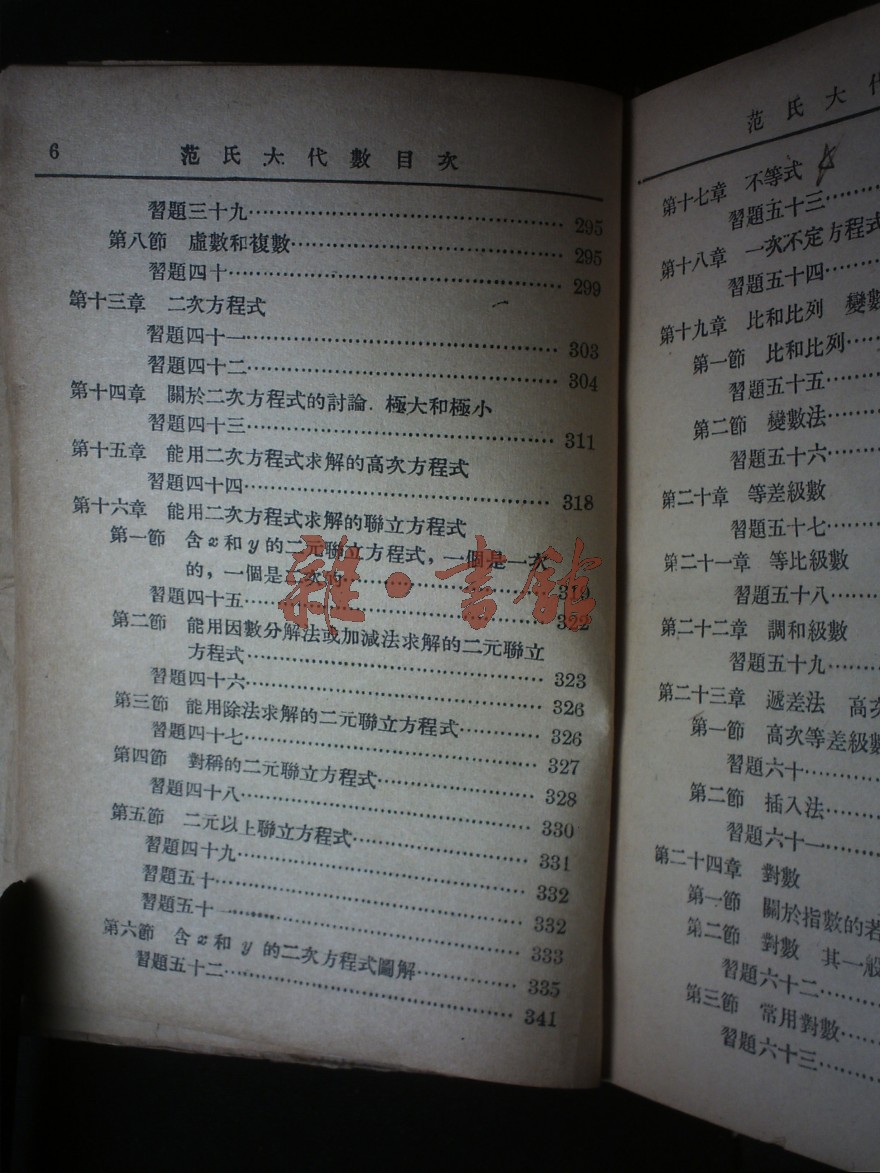 6 范氏大代數目次
習題三十九 295
第八節 虛數和複數 295
習題四十 299
第十三章 二次方程式
習題四十一 303
習題四十二 304
第十四章 關於二次方程式的討論．極大和極小
習題四十三 311
第十五章 能用二次方程式求解的高次方程式
習題四十四 318
第十六章 能用二次方程式求解的聯立方程式
第一節 含x和y的二元聯立方程式，一個是一次
的，一個是二次的 319
習題四十五 322
第二節 能用因數分解法或加減法求解的二元聯立
方程式 323
習題四十六 326
第三節 能用除法求解的二元聯立方程式 326
習題四十七 327
第四節 對稱的二元聯立方程式 328
習題四十八 330
第五節 二元以上聯立方程式 331
習題四十九 332
習題五十 332
習題五十一 333
第六節 含x和y的二次方程式圖解 335
習題五十二 341
雜·書館
范氏大代
第十七章 不等式
習題五十三
第十八章 一次不定方程式
習題五十四
第十九章 比和比列 變數
第一節 比和比列
習題五十五
第二節 變數法
習題五十六
第二十章 等差級數
習題五十七
第二十一章 等比級數
習題五十八
第二十二章 調和級數
習題五十九
第二十三章 遞差法 高次
第一節 高次等差級數
習題六十
第二節 插入法
習題六十一
第二十四章 對數
第一節 關於指數的若
第二節 對數 其一般
習題六十二
第三節 常用對數
習題六十三